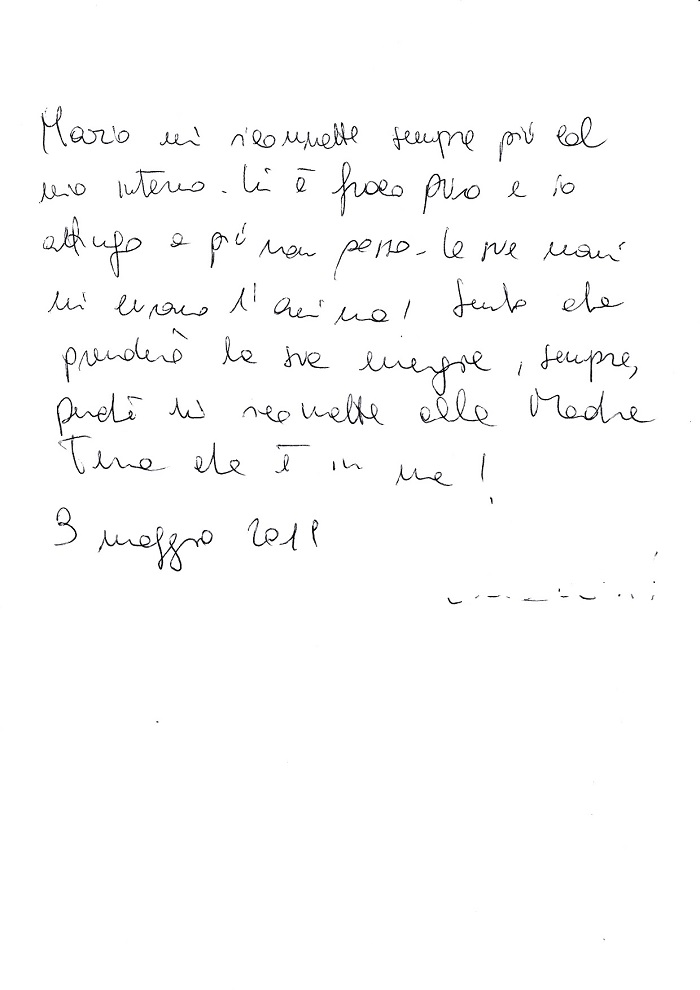 Mario mi riconnette sempre più col
mio interno. Lì è fuoco puro e io
attingo a più non posso. Le sue mani
mi curano l'anima! Sento che
prenderò la sua energia, sempre,
perché mi riconnette alla Madre
Terra che è in me!
3 maggio 2018